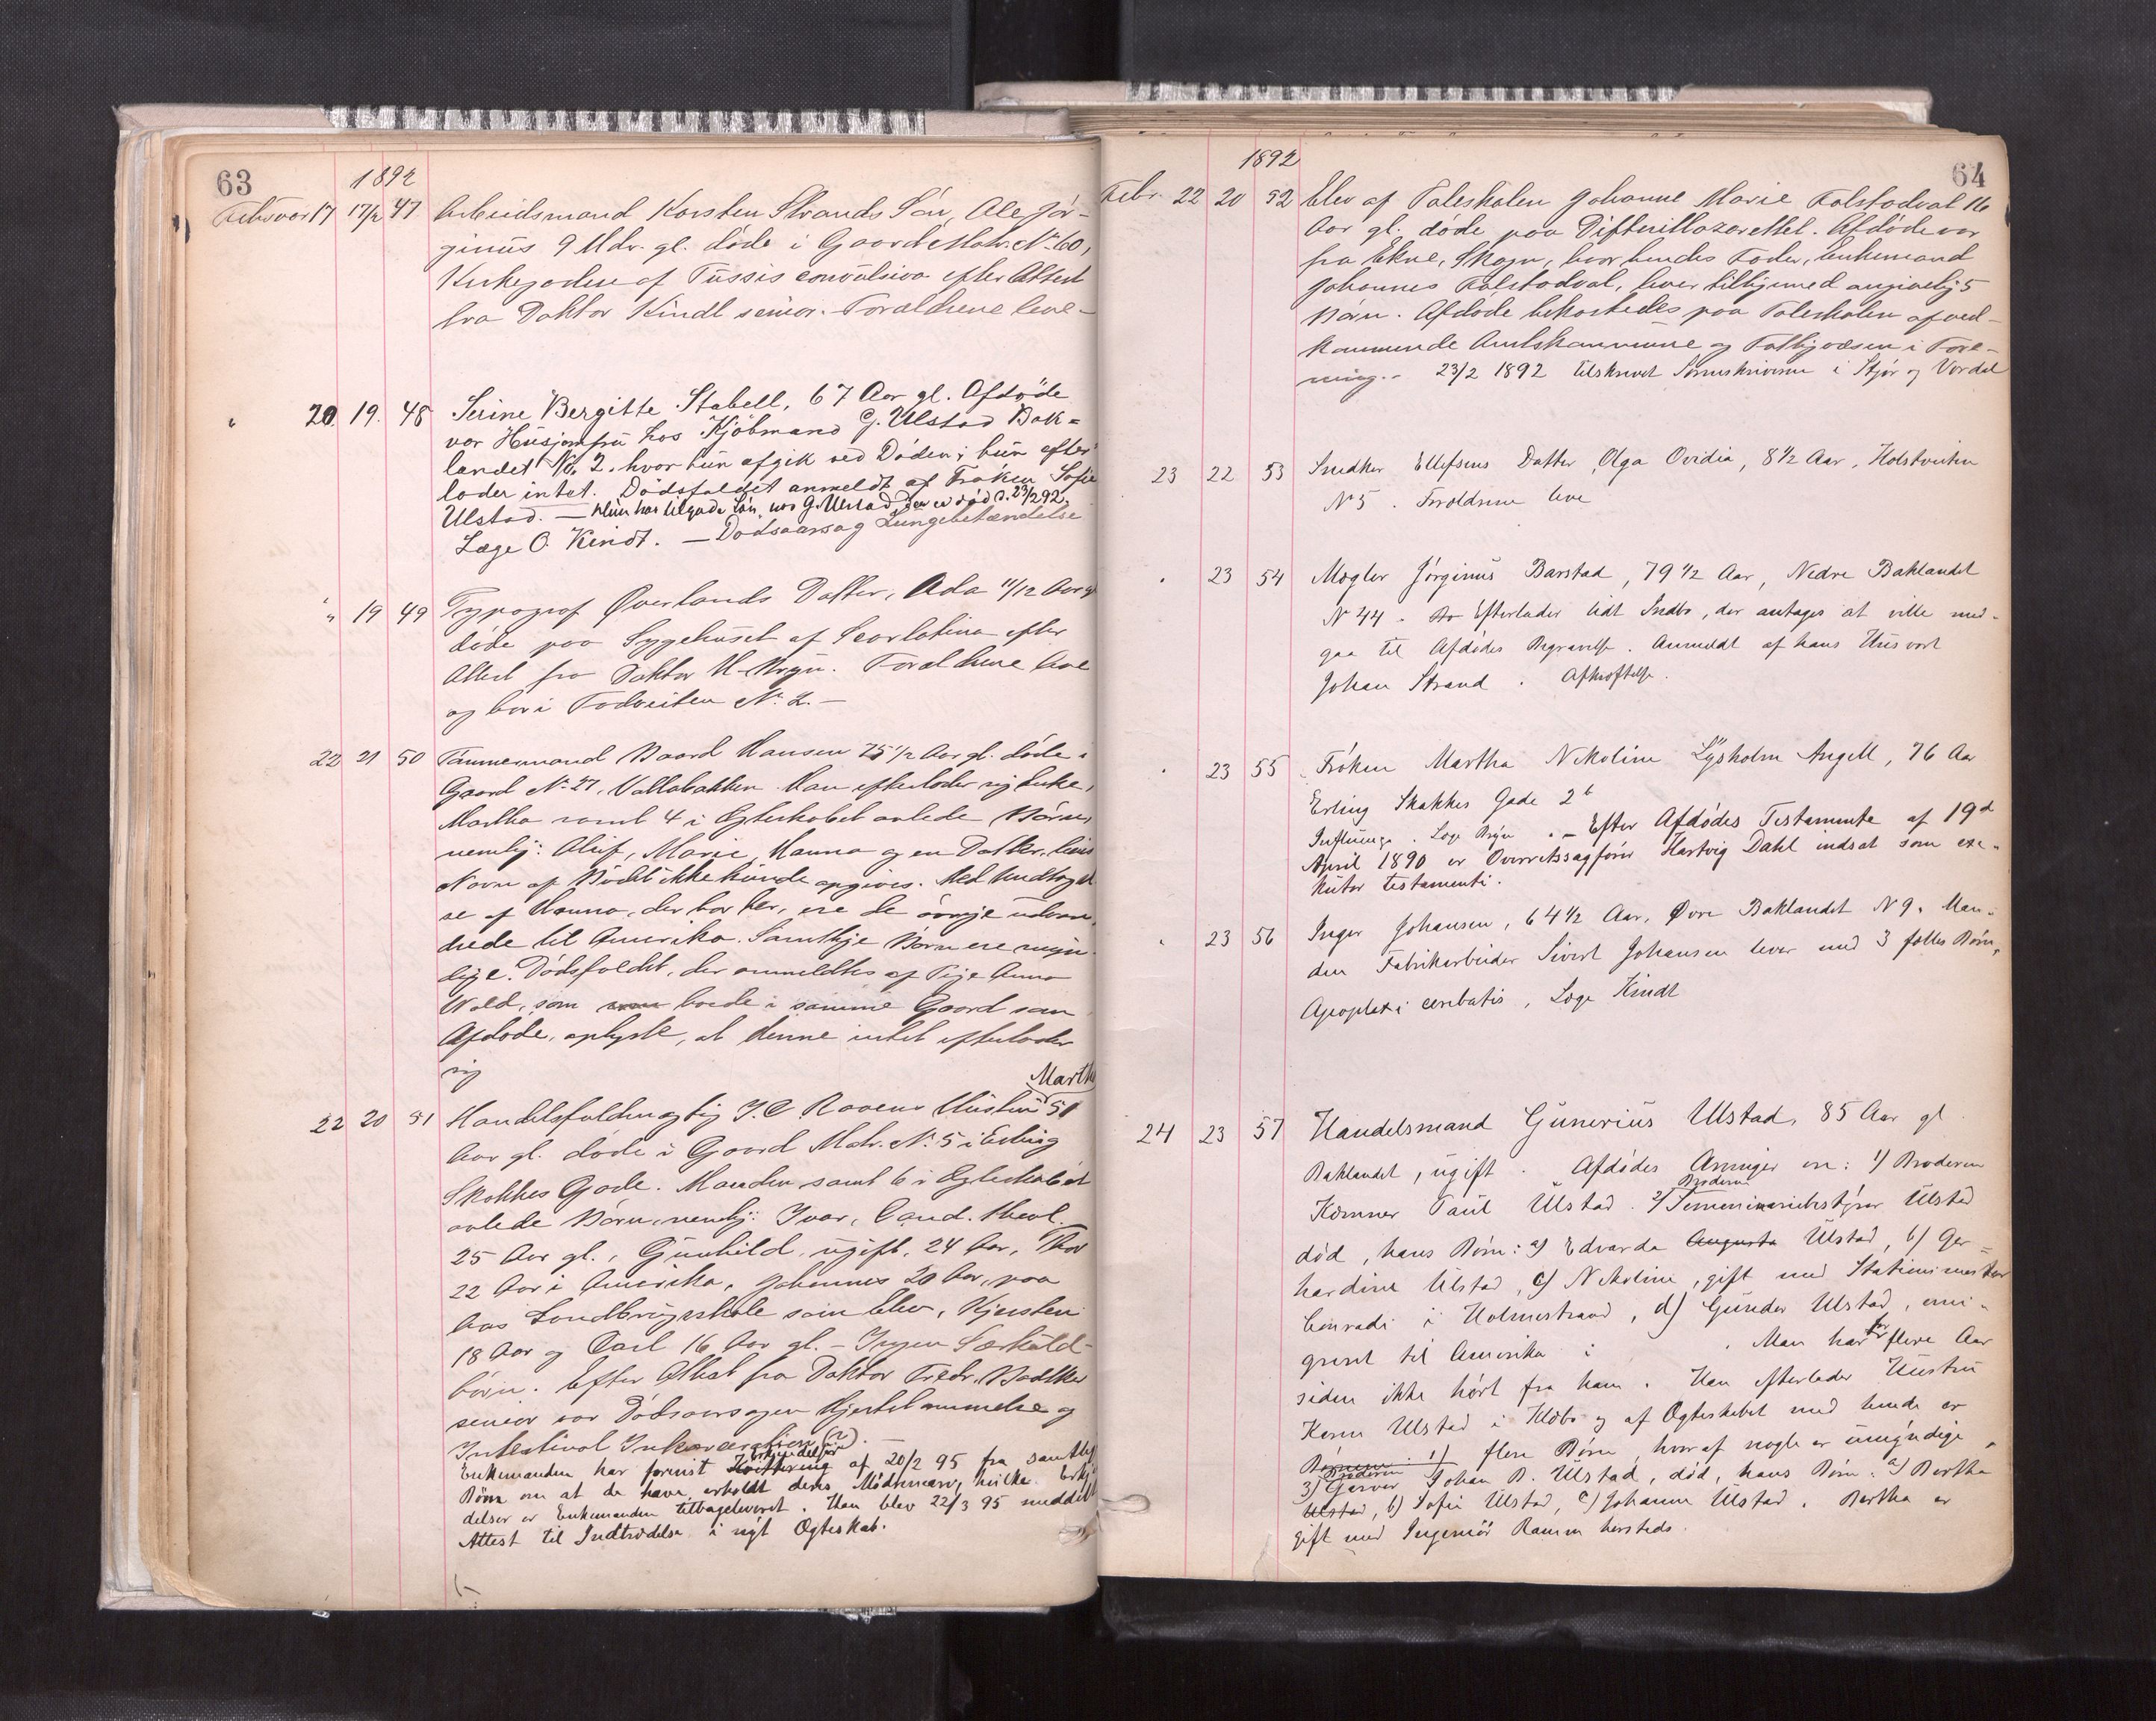 63
1892
Februar 17 17/2 47 Arbeidsmand Karsten Strands Søn, Ole Jør-
ginus 9 Mdr. gl. døde i Gaard Matr. No 60,
Kirkegaden af Tussis convulsiva efter Attest
fra Doktor Kindt senior. Forældrene leve -
" 20. 19. 48 Serine Bergitte Stabell, 67 Aar gl. Afdøde
var Husjomfru hos Kjøbmand G. Ulstad Bak=
landet No. 2. hvor hun afgik ved Døden; hun efter
lader intet. Dødsfaldet anmeldt af Frøken Sofie
Ulstad. — Hun har tilgode Løn hos G. Ulstad, der er død d. 23/2 92.
Læge O. Kindt. — Dødsaarsag Lungebetændelse
" 19 49 Typograf Øverlands Datter, Ada 11/12 Aar gl
døde paa Sygehuset af Scarlatina efter
Attest fra Doktor H. Bryn. Forældrene leve
og bor i No. 2. —
22 21 50 Tømmermand Baard Hansen 75 1/2 Aar gl. døde i
Gaard No 27, Vollabakken. Han efterlader sig Enke,
Martha samt 4 i Egteskabet avlede Børn,
nemlig: Oluf, Marie, Hanna og en Datter, hvis
Navn af Budet ikke kunde opgives. Med Undtagel
se af Hanna, der bor her, ere de øvrige udvan
drede til Amerika. Samtlige Børn ere myn-
dige. Dødsfaldet, der anmeldtes af Pige Anna
Wold, som boede i samme Gaard som
Afdøde, oplyste, at denne intet efterlader
sig
Martha
22 20 51 Handelsfuldmægtig J. C. Raavens Hustru 51
Aar gl. døde i Gaard Matr. No. 5 i Erling
Skakkes Gade. Manden samt 6 i Egteskabet
avlede Børn, nemlig: Ivar, Cand. theol.
25 Aar gl., Gunhild, ugift, 24 Aar, Thor
22 Aar i Amerika, Johannes 20 Aar, paa
Aas Landbrugsskole som Elev, Kjersten
18 Aar og Carl 16 Aar gl. — Ingen Særkuld-
børn. Efter Attest fra Doktor Fredr. Bødtker
senior var Dødsaarsagen Hjertelammelse og
Intestinal (?).
Erkjendelser
Enkemanden har forevist Kvittering af 20/2 95 fra samtlige
Børn om at de have erholdt deres Mødrenearv, hvilke Erkj
delser er Enkemanden tilbageleveret. Han blev 22/3 95 meddelt
Attest til Indtrædelse i nyt Ægteskab.
64
1892
Febr. 22 20 52 Elev af Taleskolen Johanne Marie Falstadval 16
Aar gl. døde paa Difterillazarettet. Afdøde var
fra Ekne, Skogn, hvor hendes Fader, Enkemand
Johannes Falstadval, lever tilligemed angivelig 5
Børn. Afdøde bekostedes paa Taleskolen af ved-
kommende Amtskommune og Fattigvæsen i Fore-
ning. - 23/2 1892 tilskrevet Sorenskriveren i Stjør og Værdal
23 22 53 Snedker Ellefsens Datter Olga Ovidia, 8 1/2 Aar, Holstveiten
No 5. Forældrene leve
" 23 54 Mægler Jørginus Barstad, 79 1/2 Aar, Nedre Baklandet
No 44. Efterlader lidt Indbo, der antages at ville med-
gaa til Afdødes Begravelse. Anmeldt af hans Husvert
Johan Strand. Afkræftelse.
" 23 55 Frøken Martha Nikoline Lysholm Angell, 76 Aar
Erling Skakkes Gade 2b
Influenza. Læge Bryn. — Efter Afdødes Testamente af 19de
April 1890 er Overretssagfører Hartvig Dahl indsat som exe-
kutor testamenti.
" 23 56 Inger Johansen, 64 1/2 Aar, Øvre Baklandet No 9. Man-
den Fabrikarbeider Sivert Johansen lever med 3 fælles Børn.
Apoplexi cerebatis, Læge Kindt
24 23 57 Handelsmand Gunerius Ulstad, 85 Aar gl
Baklandet, ugift. Afdødes Arvinger ere: 1) Broderen
Kæmner Paul Ulstad. 2) Broderen Seminariebestyrer Ulstad
død, hans Børn: a) Edvarda Augusta Ulstad, b) Ger=
hardine Ulstad, c) Nikoline, gift med Stationsmester
Conradi i Holmestrand, d) Gunder Ulstad, emi-
greret til Amerika i . Man har for flere Aar
siden ikke hørt fra ham. Han efterlader Hustru
Karen Ulstad i Klæbo og af Ægteskabet med hende er
Børnene: 1) flere Børn, hvoraf nogle er umyndige,
3) Broderen Garver Johan B. Ulstad, død, hans Børn: a) Bertha
Ulstad, b) Sofie Ulstad, c) Johanne Ulstad. Bertha er
gift med Ingeniør Ramm hersteds.